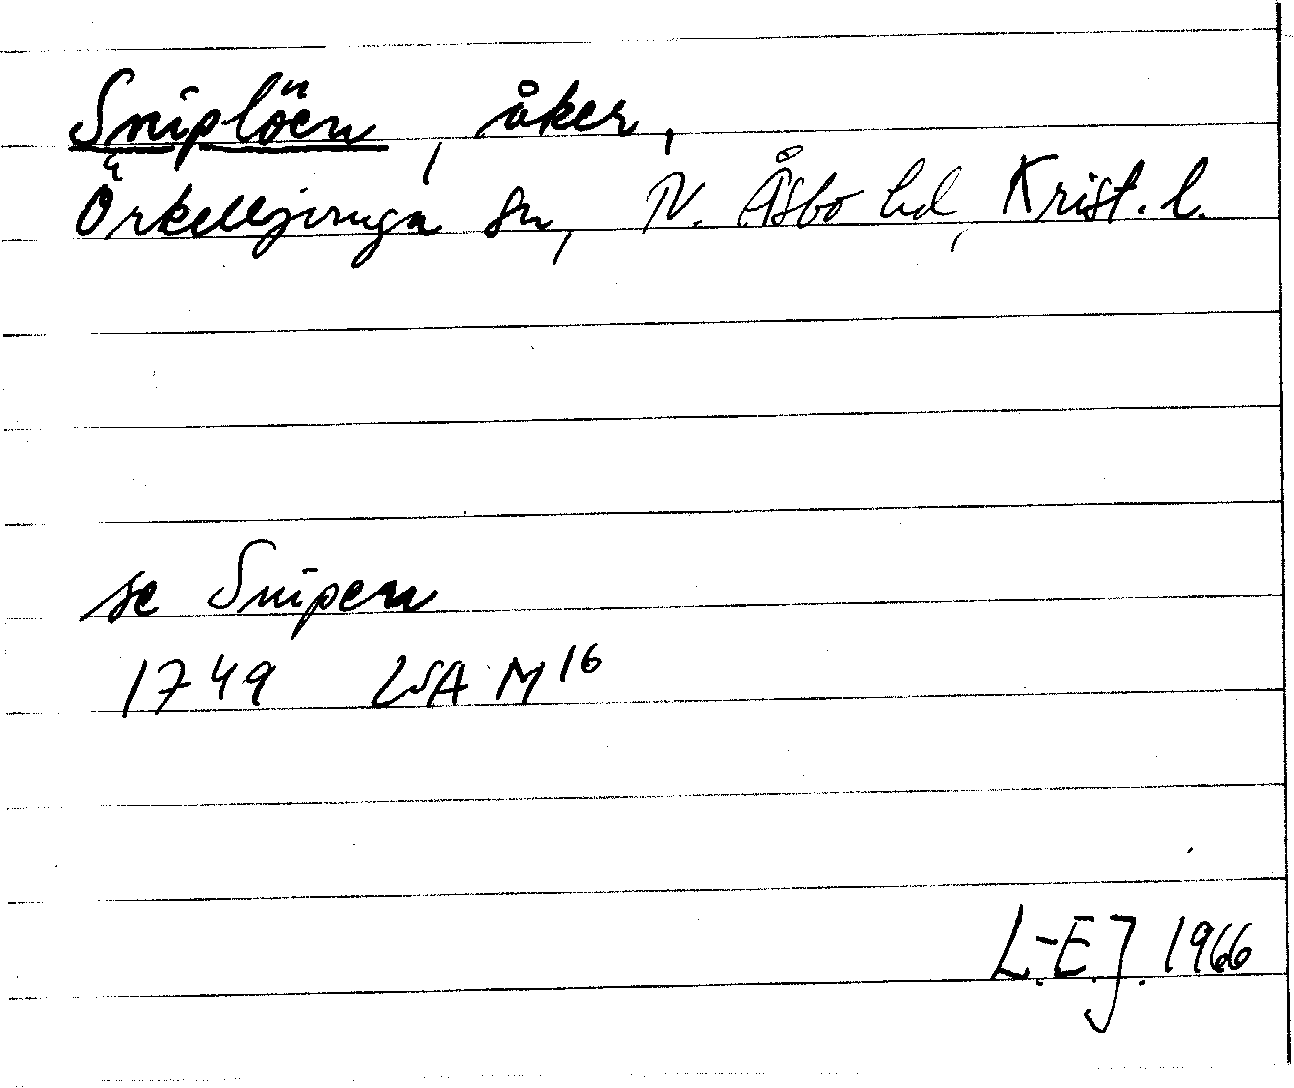 Sniplöen, åker,
Örkelljunga sn, N. Åsbo hd, Krist. l.
se Snipen
1749 LSA M16
L.-E.J. 1966